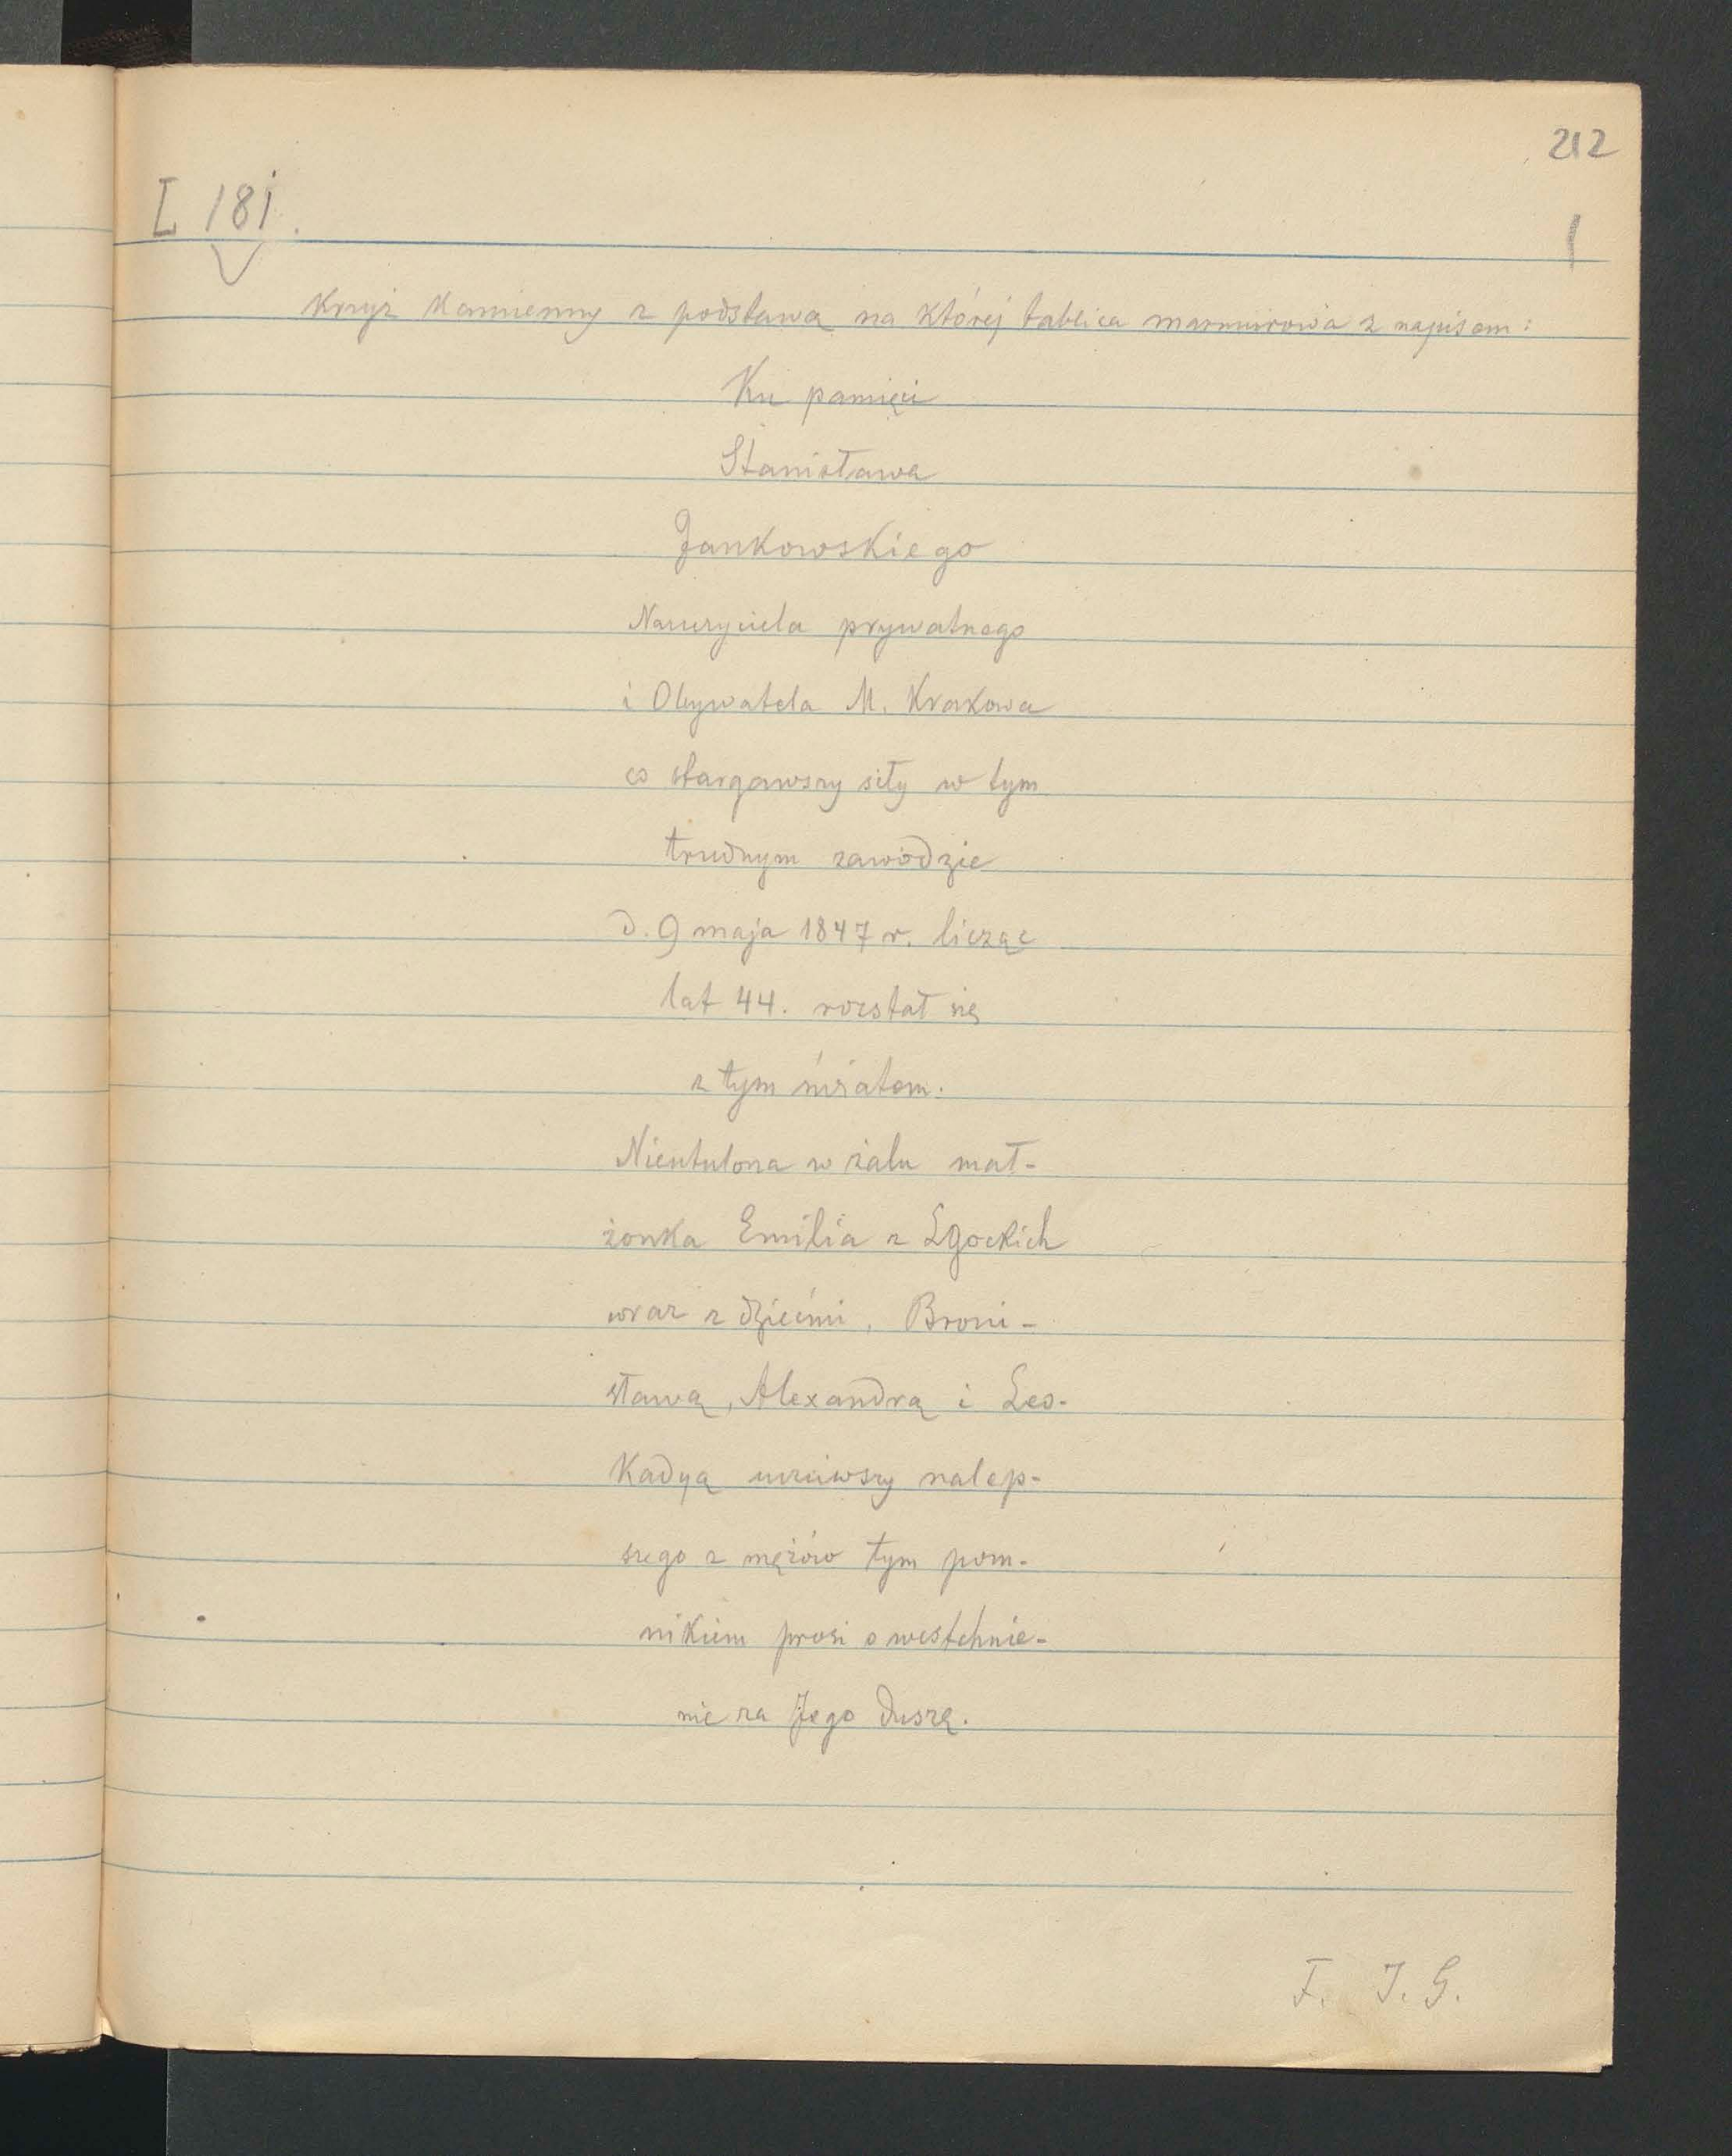 212
I 181.
Krzyż kamienny z podstawą na której tablica marmurowa z napisem:
Ku pamięci
Stanisława
Jankowskiego
Nauczyciela prywatnego
i Obywatela M. Krakowa
co stargawszy siły w tym
trudnym zawodzie
d. 9 maja 1847 r. licząc
lat 44. rozstał się
z tym światem.
Nieutulona w żalu mał-
żonka Emilia z Lgockich
wraz z dziećmi, Broni-
sławą, Alexandrą i Leo-
kadyą uczciwszy nalep-
szego z mężów tym pom-
nikiem prosi o westchnie-
nie za Jego duszę.
F. J. G.